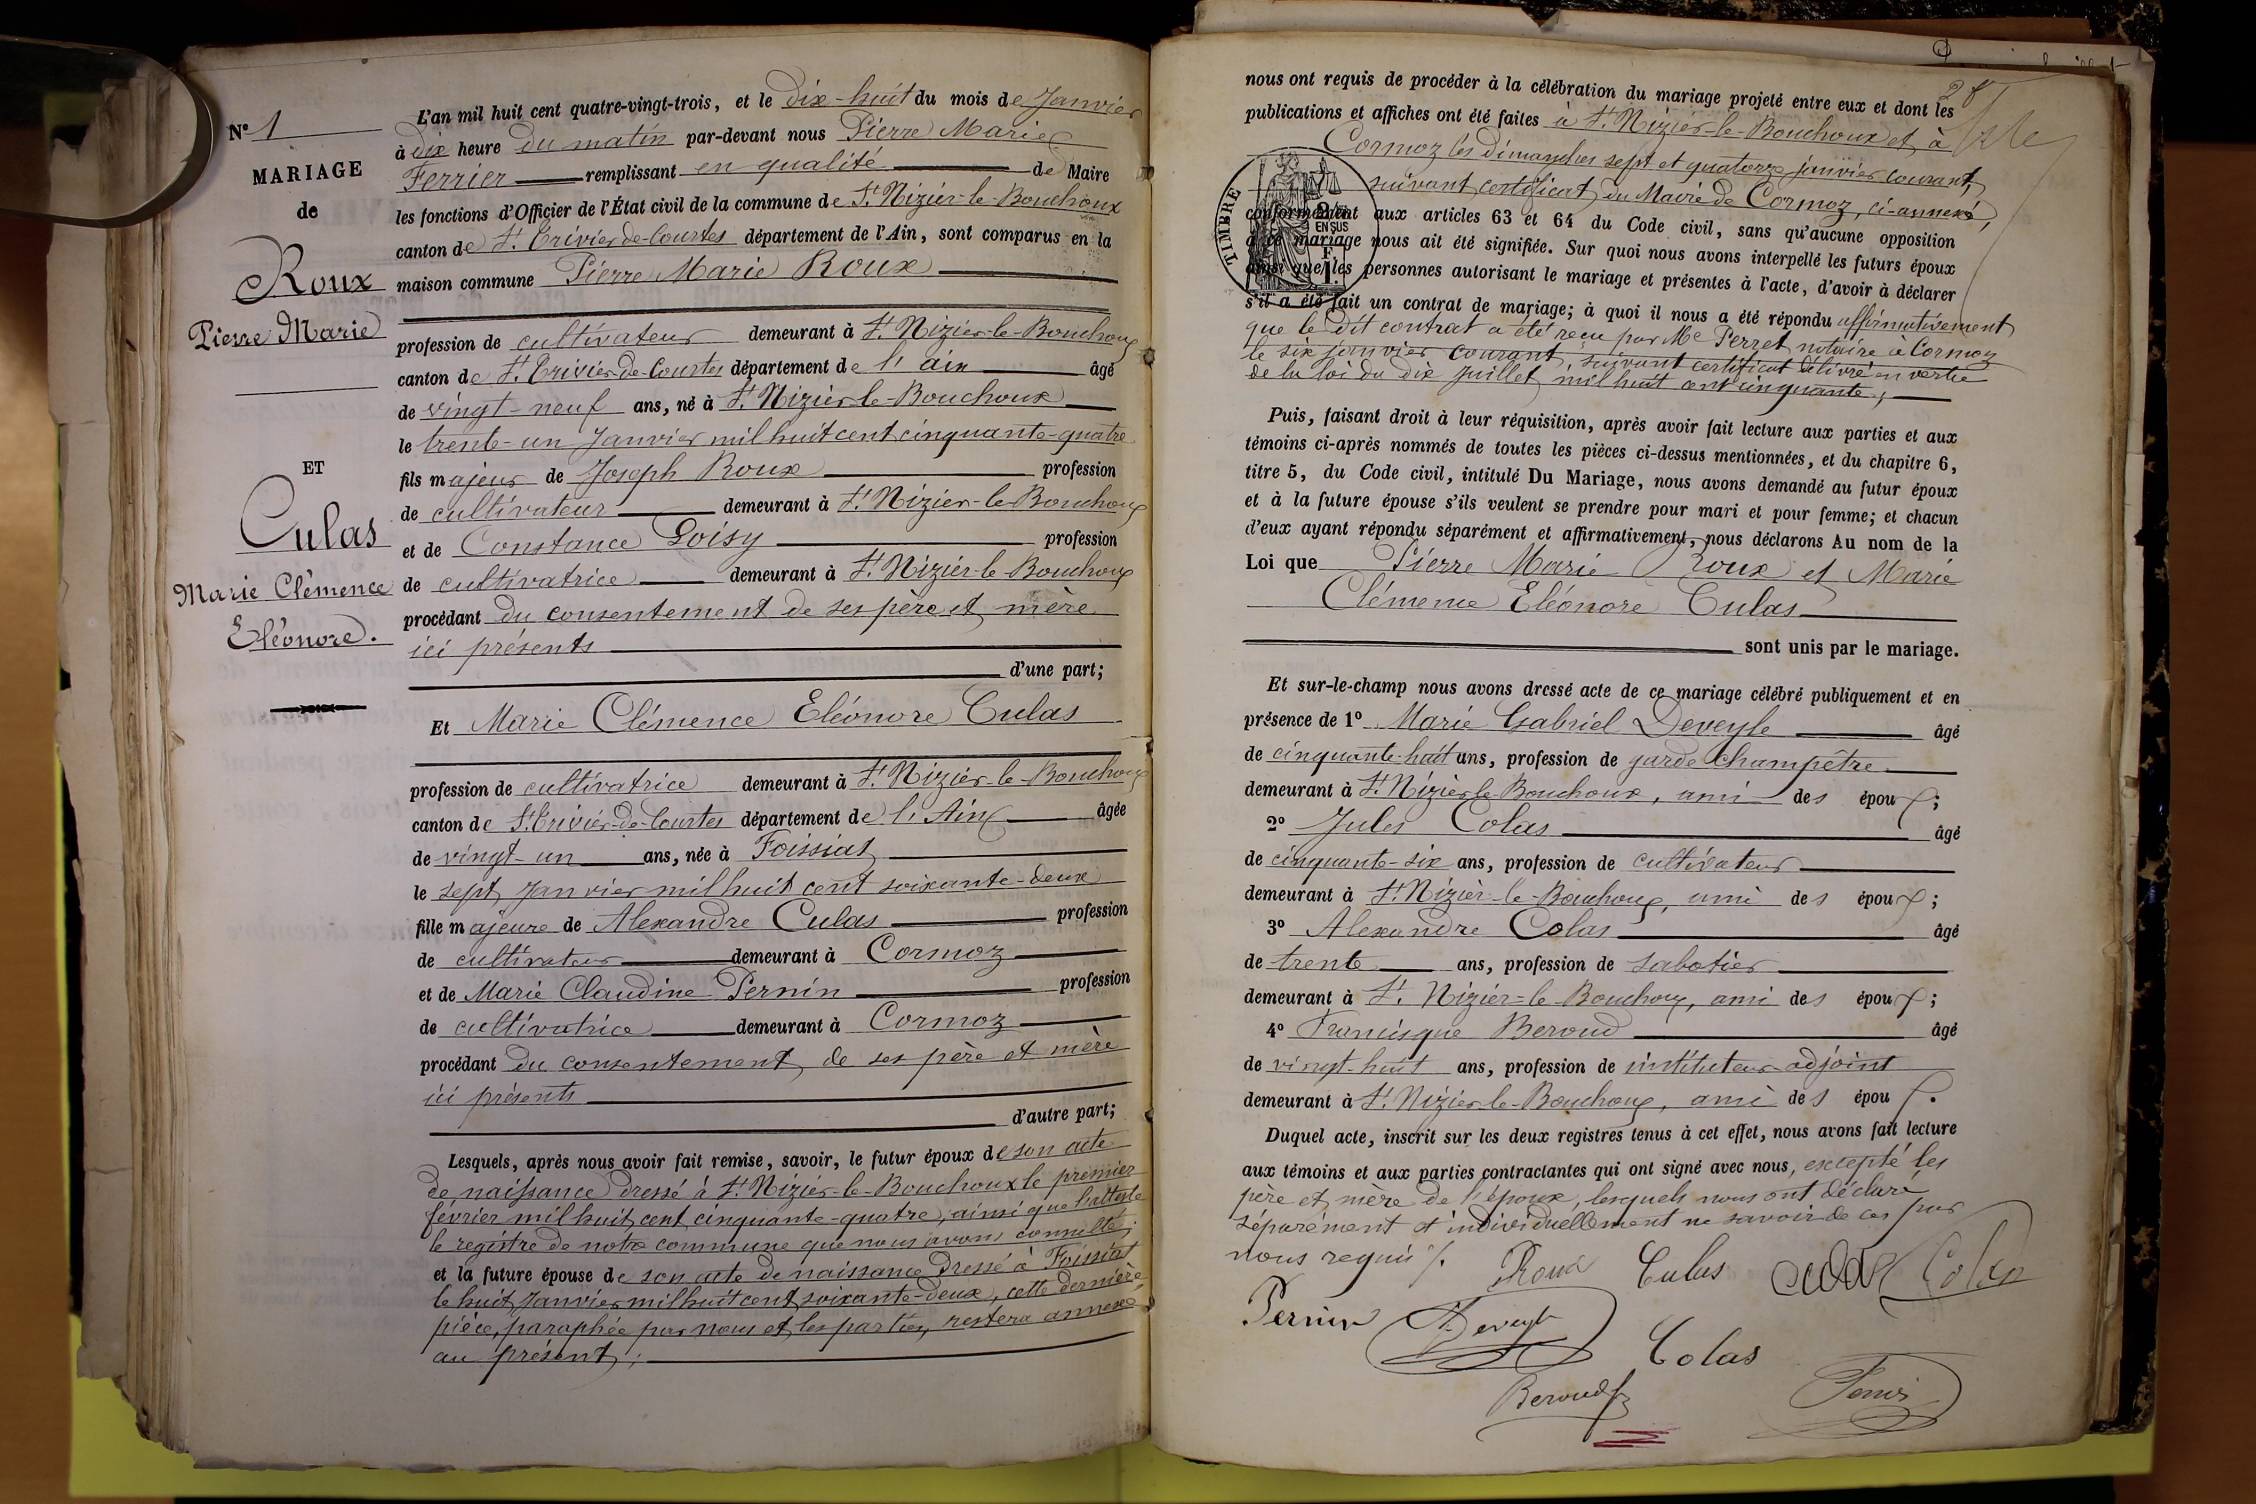 N° 1
MARIAGE
de
Roux
Pierre Marie
ET
Culas
Marie Clémence
Eléonore.
L'an mil huit cent quatre-vingt-trois, et le dix-huit du mois de Janvier
à dix heure du matin par-devant nous Pierre Marie
Ferrier remplissant en qualité de Maire
les fonctions d'Officier de l'État civil de la commune de St. Nizier-le-Bouchoux
canton de St. Trivier-de-Courtes département de l'Ain, sont comparus en la
maison commune Pierre Marie Roux
profession de cultivateur demeurant à St. Nizier-le-Bouchoux
canton de St. Trivier-de-Courtes département de l'ain âgé
de vingt-neuf ans, né à St. Nizier-le-Bouchoux
le trente-un Janvier mil huit cent cinquante-quatre
fils majeur de Joseph Roux profession
de cultivateur demeurant à St. Nizier-le-Bouchoux
et de Constance Loisy profession
de cultivatrice demeurant à St. Nizier-le-Bouchoux
procédant du consentement de ses père et mère
ici présents
d'une part;
Et Marie Clémence Eléonore Culas
profession de cultivatrice demeurant à St. Nizier-le-Bouchoux
canton de St. Trivier-de-Courtes département de l'Ain âgée
de vingt-un ans, née à Foissiat
le sept Janvier mil huit cent soixante-deux
fille majeure de Alexandre Culas profession
de cultivateur demeurant à Cormoz
et de Marie Claudine Pernin profession
de cultivatrice demeurant à Cormoz
procédant du consentement de ses père et mère
ici présents
d'autre part;
Lesquels, après nous avoir fait remise, savoir, le futur époux de son acte
de naissance dressé à St. Nizier-le-Bouchoux le premier
février mil huit cent cinquante-quatre, ainsi que l'atteste
le registre de notre commune que nous avons consulté;
et la future épouse de son acte de naissance dressé à Foissiat
le huit Janvier mil huit cent soixante-deux, cette dernière
pièce, paraphée par nous et les parties, restera annexée
au présent;
2
nous ont requis de procéder à la célébration du mariage projeté entre eux et dont les
publications et affiches ont été faites à St. Nizier-le-Bouchoux et à
Cormoz les dimanches sept et quatorze janvier courant,
suivant certificat du Maire de Cormoz, ci-annexé,
conformément aux articles 63 et 64 du Code civil, sans qu'aucune opposition
à ce mariage nous ait été signifiée. Sur quoi nous avons interpellé les futurs époux
ainsi que les personnes autorisant le mariage et présentes à l'acte, d'avoir à déclarer
s'il a été fait un contrat de mariage; à quoi il nous a été répondu affirmativement
que le dit contrat a été reçu par Me Perret, notaire à Cormoz
le six janvier courant, suivant certificat délivré en vertu
de la loi du dix Juillet mil huit cent cinquante;
TIMBRE
2/10
EN SUS
Puis, faisant droit à leur réquisition, après avoir fait lecture aux parties et aux
témoins ci-après nommés de toutes les pièces ci-dessus mentionnées, et du chapitre 6,
titre 5, du Code civil, intitulé Du Mariage, nous avons demandé au futur époux
et à la future épouse s'ils veulent se prendre pour mari et pour femme; et chacun
d'eux ayant répondu séparément et affirmativement, nous déclarons Au nom de la
Loi que Pierre Marie Roux et Marie
Clémence Eléonore Culas
sont unis par le mariage.
Et sur-le-champ nous avons dressé acte de ce mariage célébré publiquement et en
présence de 1° Marie Gabriel Deveyle âgé
de cinquante-huit ans, profession de garde champêtre
demeurant à St. Nizier-le-Bouchoux, ami des époux;
2° Jules Colas âgé
de cinquante-six ans, profession de cultivateur
demeurant à St. Nizier-le-Bouchoux, ami des époux;
3° Alexandre Colas âgé
de trente ans, profession de sabotier
demeurant à St. Nizier-le-Bouchoux, ami des époux;
4° Francisque Beroud âgé
de vingt-huit ans, profession de instituteur-adjoint
demeurant à St. Nizier-le-Bouchoux, ami des époux.
Duquel acte, inscrit sur les deux registres tenus à cet effet, nous avons fait lecture
aux témoins et aux parties contractantes qui ont signé avec nous, excepté les
père et mère de l'époux, lesquels nous ont déclaré
séparément et individuellement ne savoir de ce par
nous requis /.
Roux Culas Culas Colas
Pernin Deveyle
Colas
Beroud